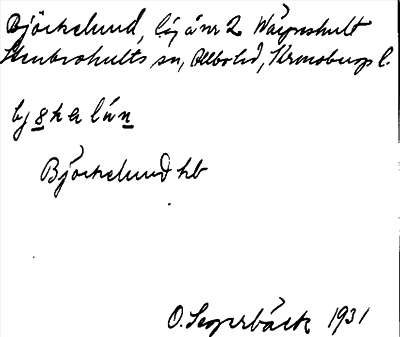 Björkelund, läg å nr 2 Vägershult
Stenbrohults sn, Allbo hd, Kronobergs l.
bjökelún
Björkelund hb
O. Segerbäck 1931